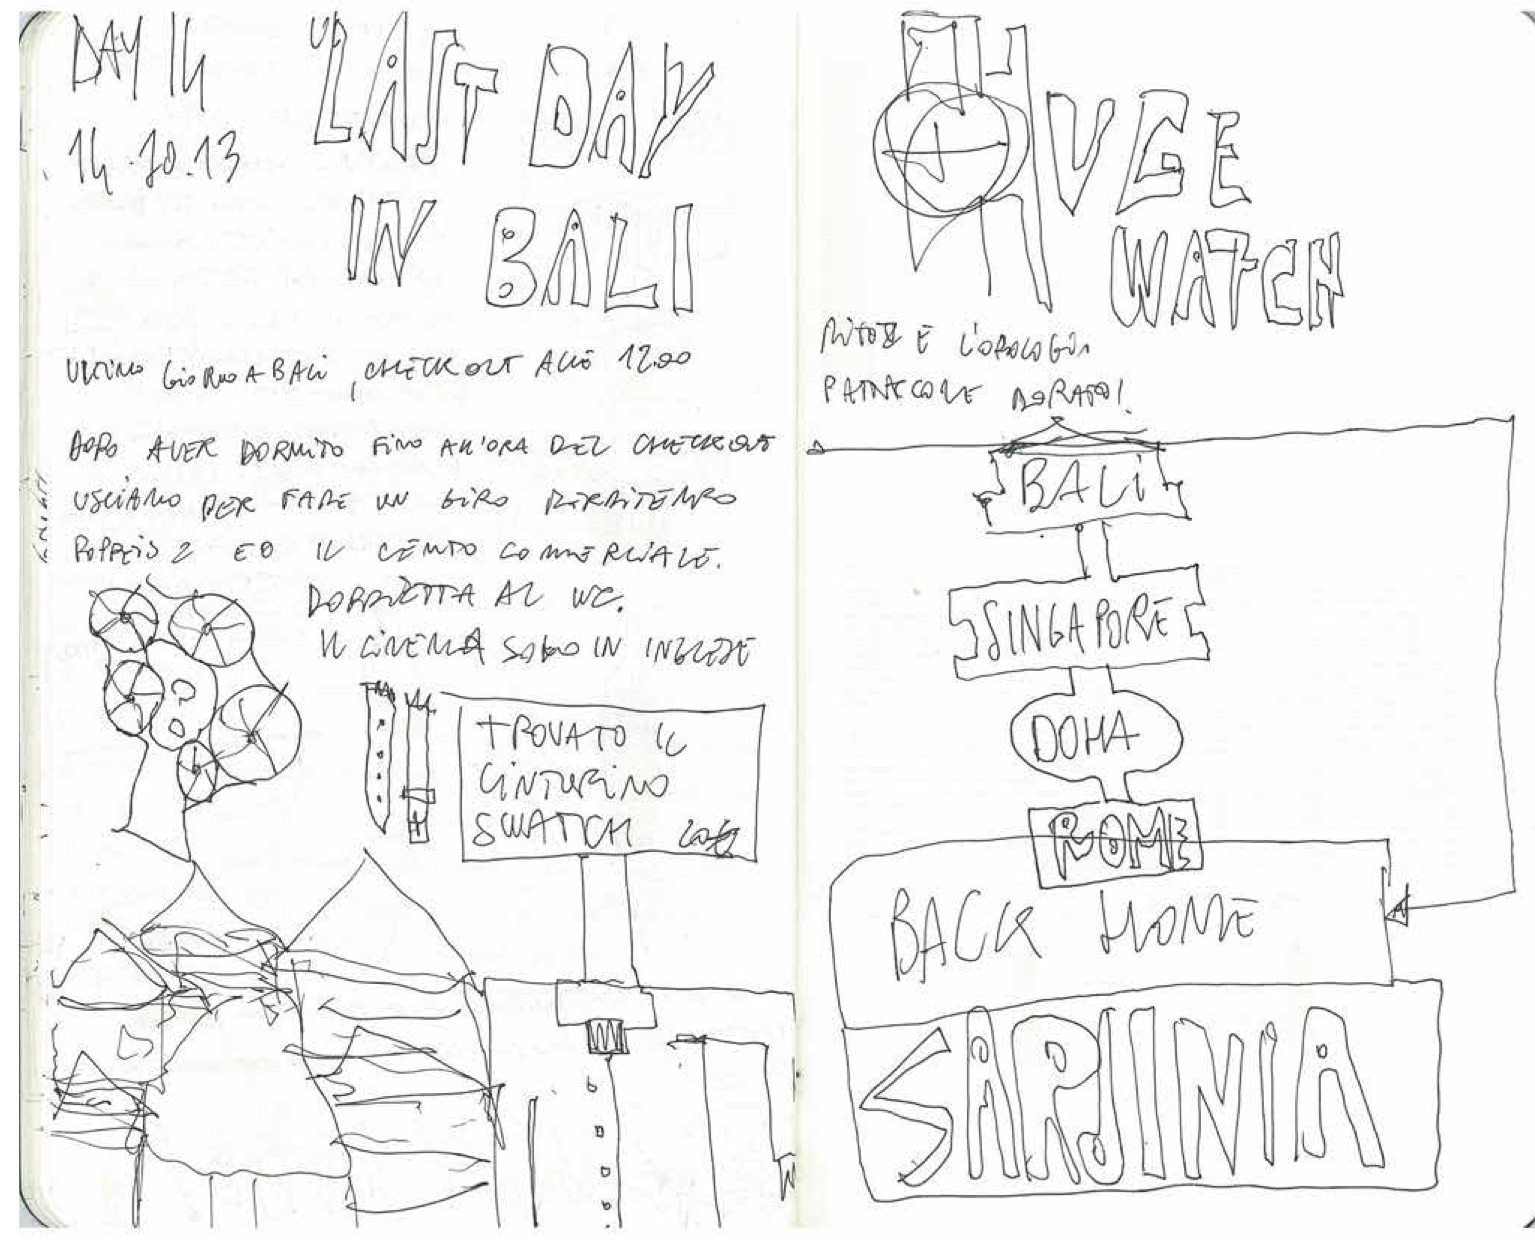 DAY 14
14.10.13
LAST DAY
IN BALI
ULTIMO GIORNO A BALI, CHECK OUT ALLE 12.00
DOPO AVER DORMITO FINO ALL'ORA DEL CHECKOUT
USCIAMO PER FARE UN GIRO
POPPEIS 2 ED IL CENTRO COMMERCIALE.
DOPPIETTA AL WC.
IL CINEMA SOLO IN INGLESE
TROVATO IL
CINTURINO
SWATCH
HUGE
WATCH
E L'OROLOGIO
PATACCONE DORATO!
BALI
SINGAPORE
DOHA
ROME
BACK HOME
SARDINIA